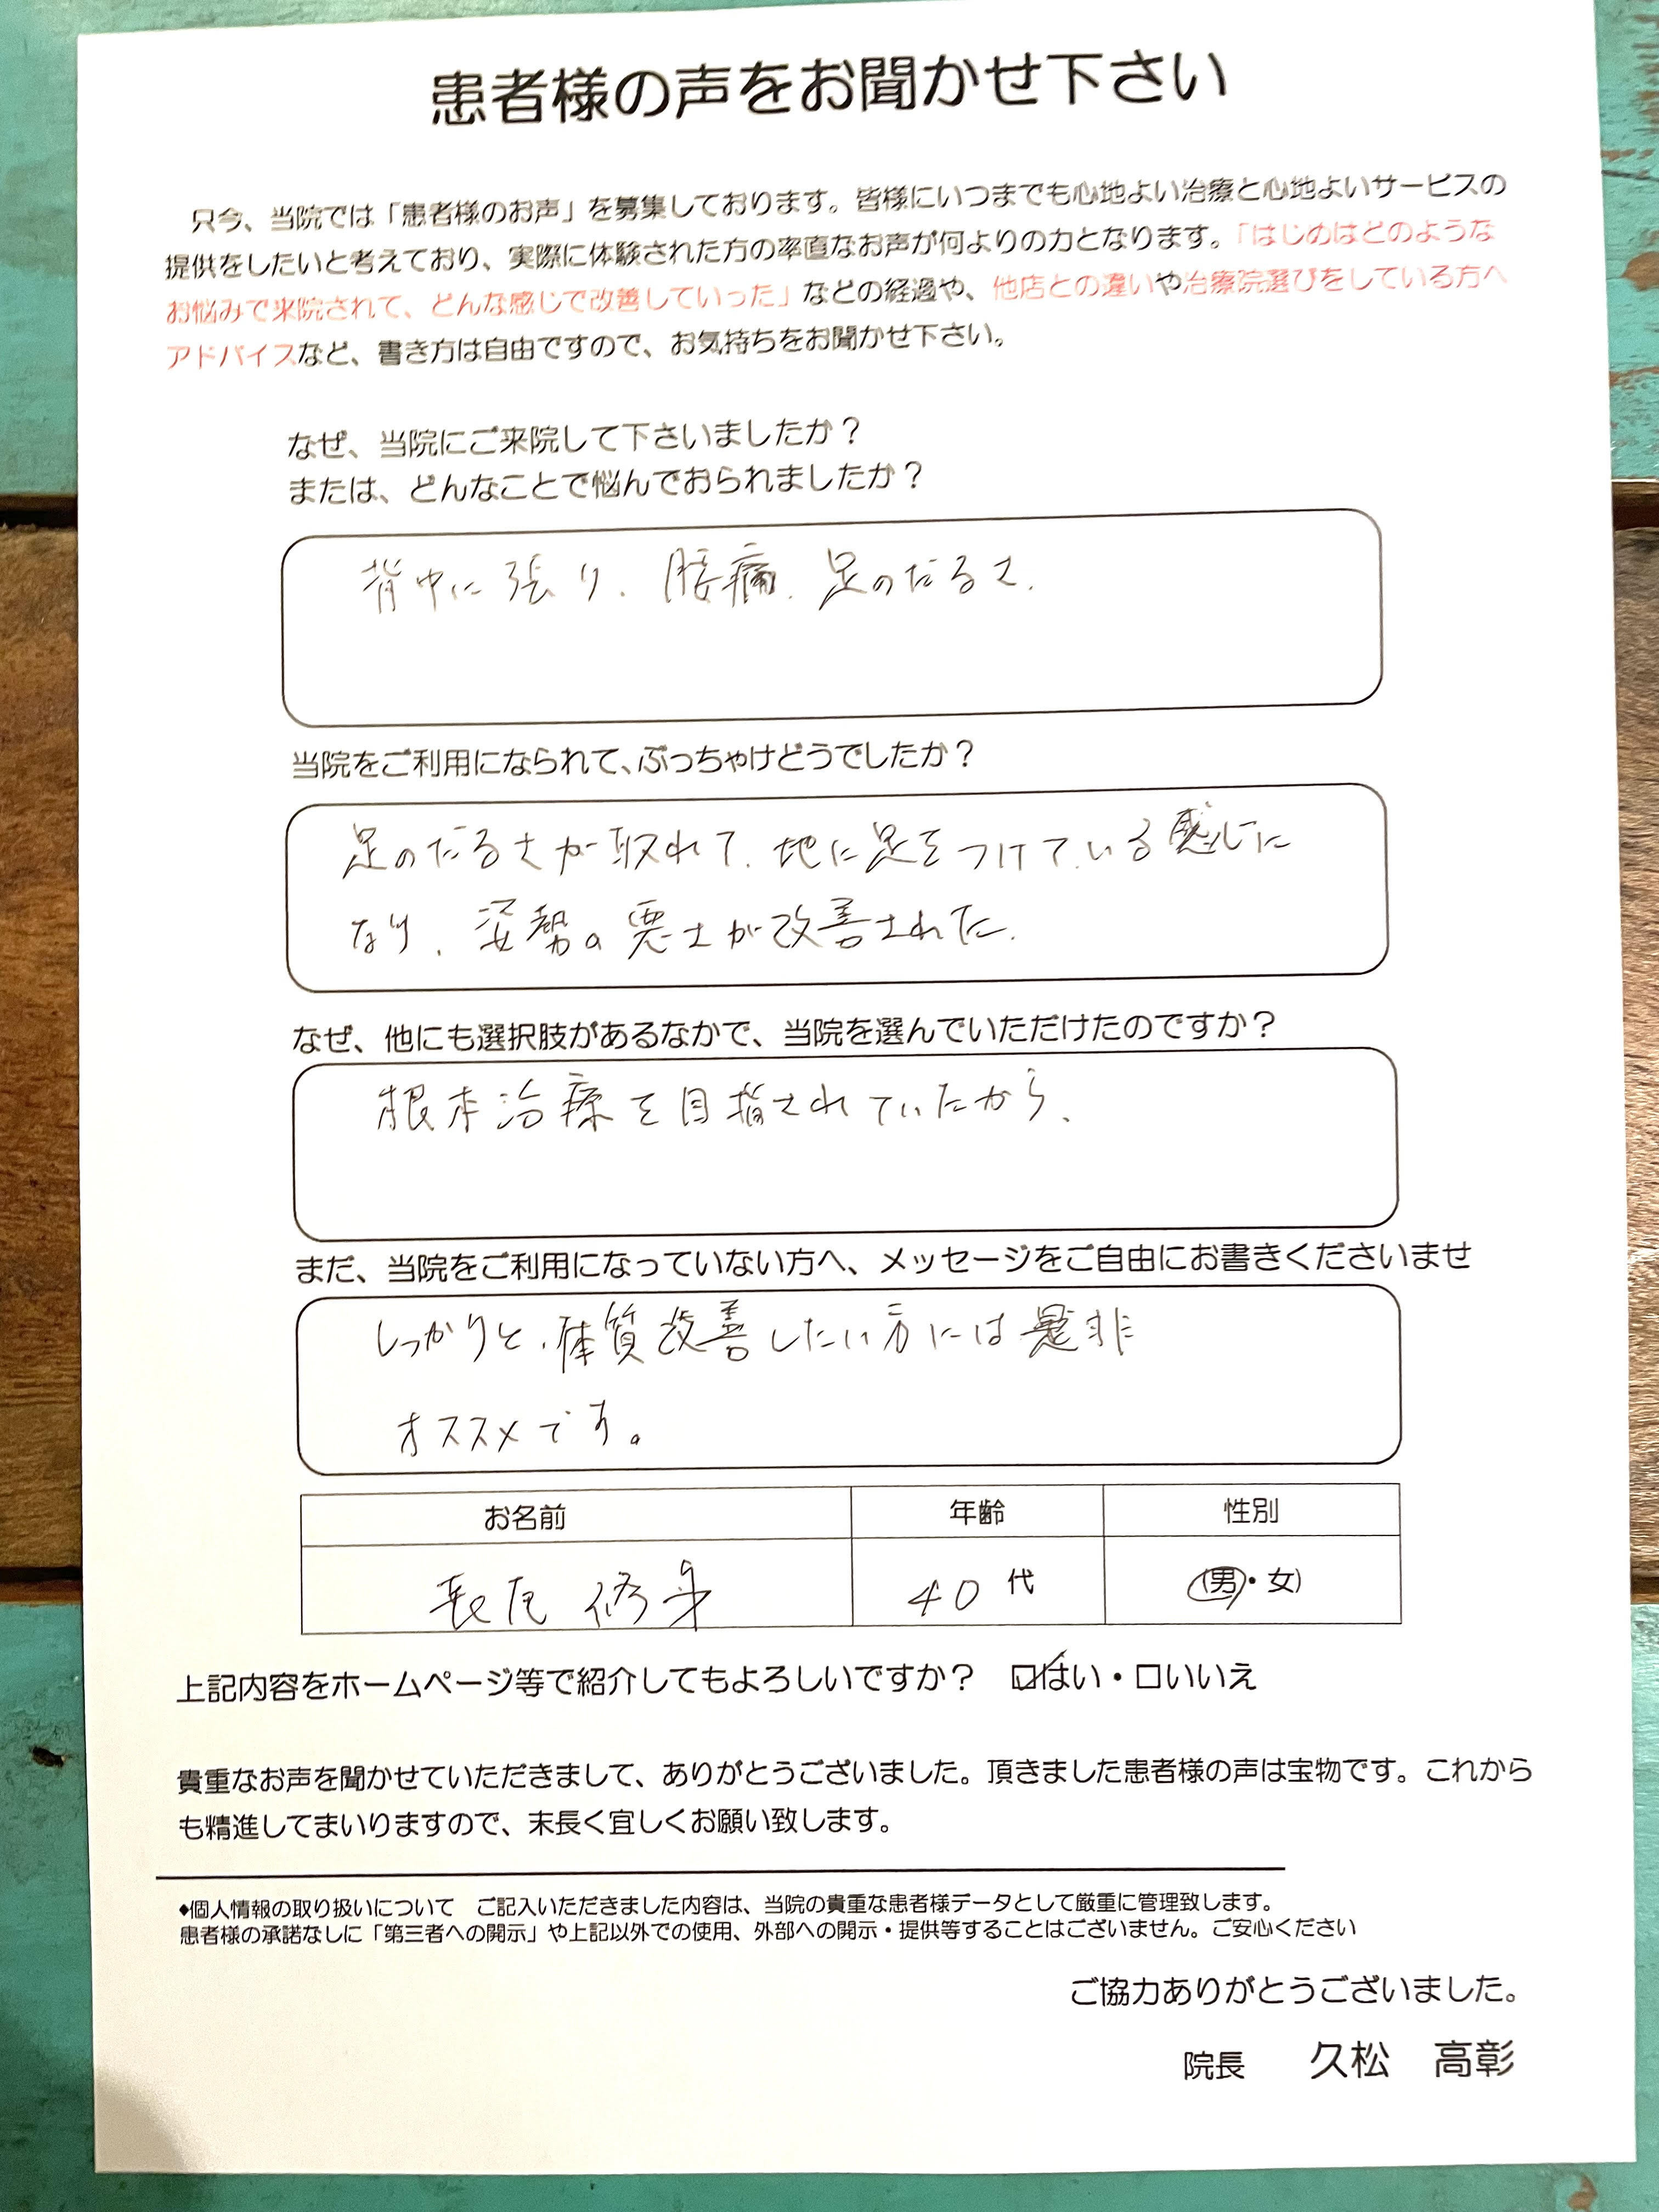 患者様の声をお聞かせ下さい
只今、当院では「患者様のお声」を募集しております。皆様にいつまでも心地よい治療と心地よいサービスの
提供をしたいと考えており、実際に体験された方の率直なお声が何よりの力となります。「はじめはどのような
お悩みで来院されて、どんな感じで改善していった」などの経過や、他店との違いや治療院選びをしている方へ
アドバイスなど、書き方は自由ですので、お気持ちをお聞かせ下さい。
なぜ、当院にご来院して下さいましたか？
または、どんなことで悩んでおられましたか？
背中に張り、腰痛、足のだるさ.
当院をご利用になられて、ぶっちゃけどうでしたか？
足のだるさが取れて、地に足をつけている感じに
なり、姿勢の悪さが改善された.
なぜ、他にも選択肢があるなかで、当院を選んでいただけたのですか？
根本治療を目指されていたから、
まだ、当院をご利用になっていない方へ、メッセージをご自由にお書きくださいませ
しっかりと、体質改善したい方には是非
オススメです。
お名前 年齢 性別
長尾 修身 40代 (男・女)
上記内容をホームページ等で紹介してもよろしいですか？ ☑はい・□いいえ
貴重なお声を聞かせていただきまして、ありがとうございました。頂きました患者様の声は宝物です。これから
も精進してまいりますので、末長く宜しくお願い致します。
◆個人情報の取り扱いについて ご記入いただきました内容は、当院の貴重な患者様データとして厳重に管理致します。
患者様の承諾なしに「第三者への開示」や上記以外での使用、外部への開示・提供等することはございません。ご安心ください
ご協力ありがとうございました。
院長 久松 高彰